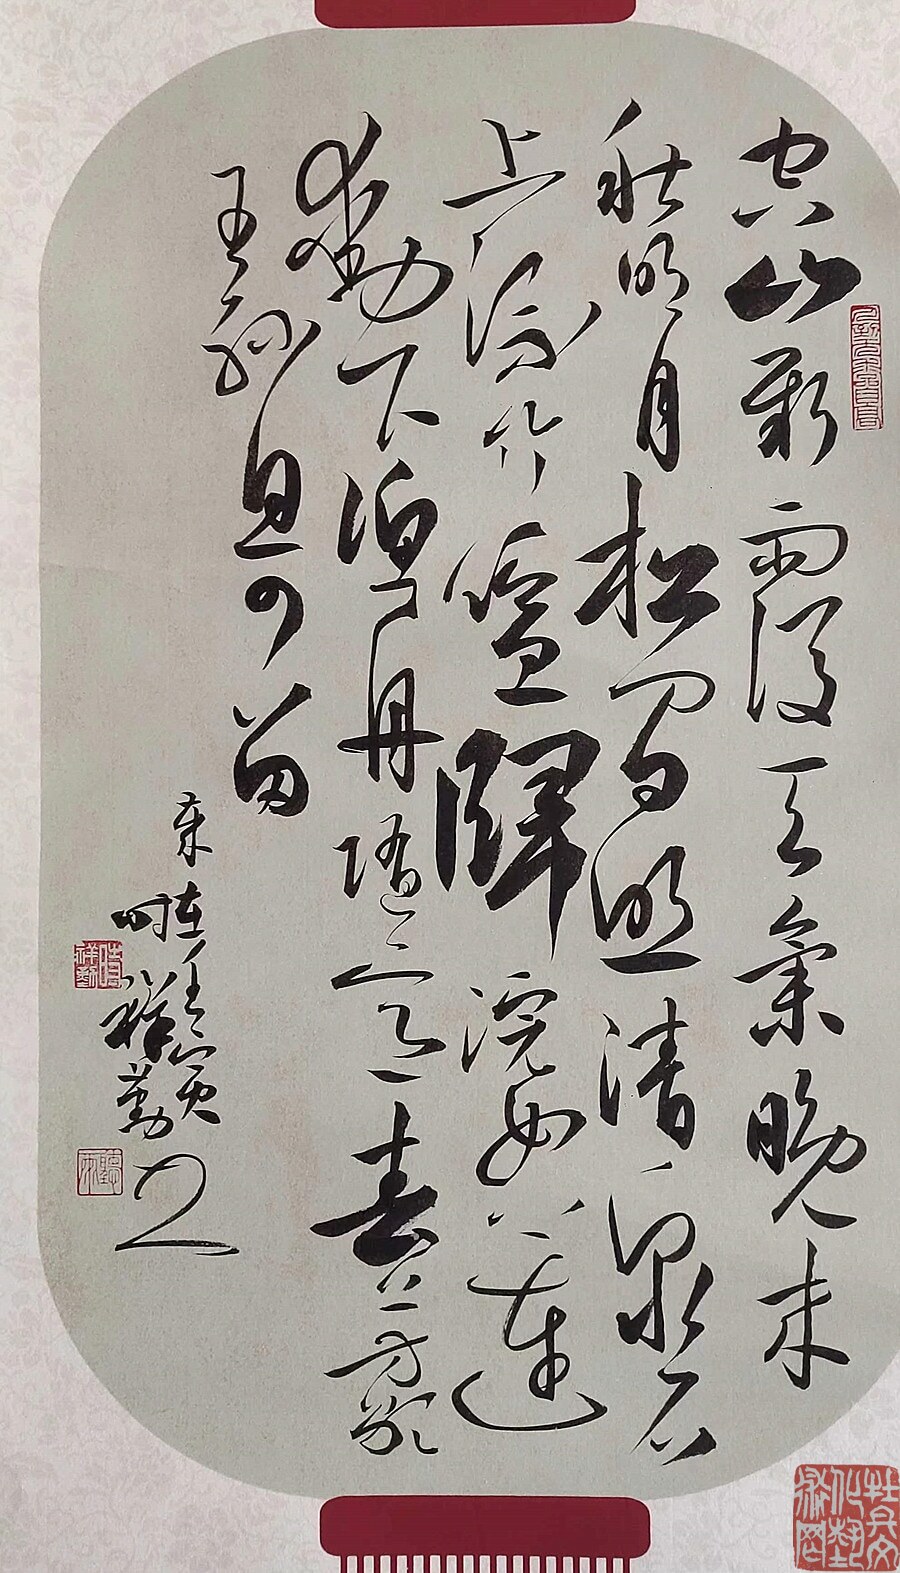 空山新雨後天氣晚來
秋明月松間照清泉石
上流竹喧歸浣女蓮
動下漁舟隨意春芳歇
王孫自可留
歲在壬寅
時祥勤